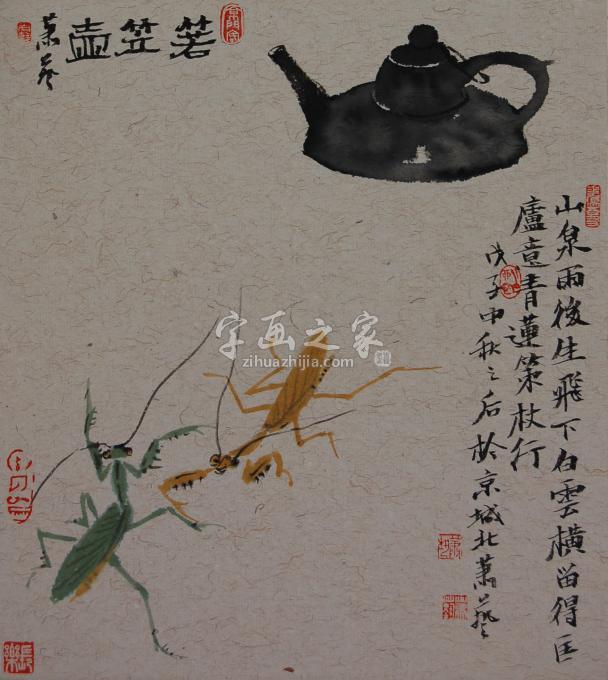 箬笠壺
蕭藝
山泉雨後生飛下白雲橫留得匡
廬意青蓮策杖行
戊子中秋之后於京城北蕭藝
長樂
字画之家
zihuazhijia.com